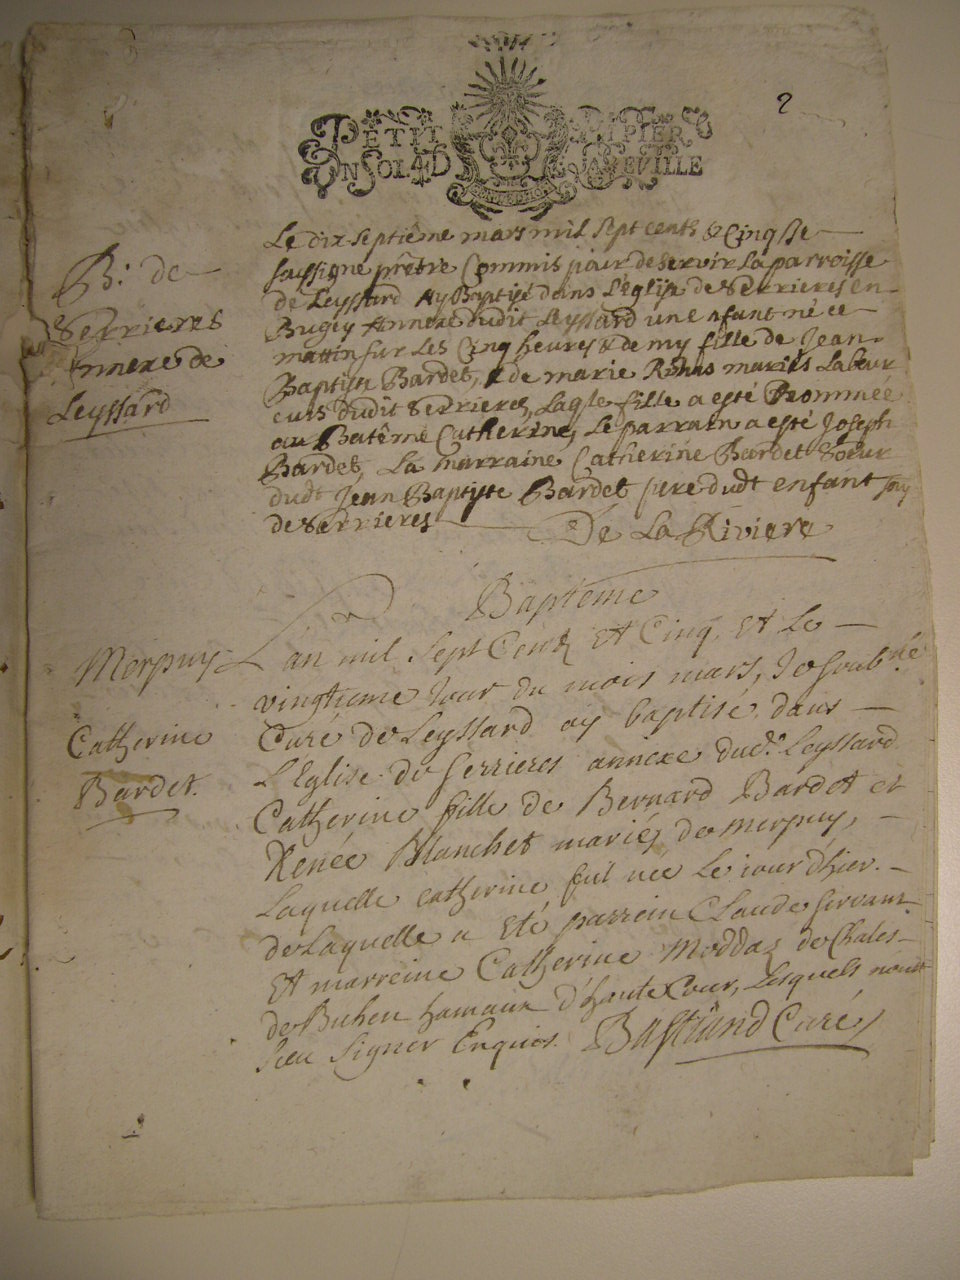 2
PETIT PAPIER
UN SOL LA D FEVILLE
B: de
Serrieres
Annexe de
Leyssard
Le dix septiême mars mil sept cents & Cinq Je
soussigné prêtre Commis pour desservir La parroisse
de Leyssard Ay Baptisé dans L'église de Serrieres en
Bugey Annexe dudit Leyssard une nfant né ce
mattin sur Les Cinq heures & demy fille de Jean
Baptiste Bardet, & de marie mariés Labour
eurs dudit Serrieres, Laqle fille a esté nommée
au Batême Catherine, Le parrain a esté Joseph
Bardet, La marraine Catherine Bardet soeur
dudt Jean Baptiste Bardet pere dudt enfant Tous
de Serrieres
De La Riviere
Baptême
Merpuys
Catherine
Bardet.
L'an mil Sept Centz Et Cinq, Et Le
vingtieme Jour du mois mars, Je Soubné
Curé de Leyssard ay baptisé dans
L'Eglise de Serrieres annexe dud. Leyssard
Catherine fille de Bernard Bardet et
Renée Blanchet mariéz de merpuy,
Laquelle catherine fut née Le iour d'hier.
de Laquelle a Eté parrein Claude Servant
Et marreine Catherine Moddaz de Chales
de Buhen hameaux d'hauteCour, Lesquels n'ont
Sceu Signer Enquis. Bastiand Curé